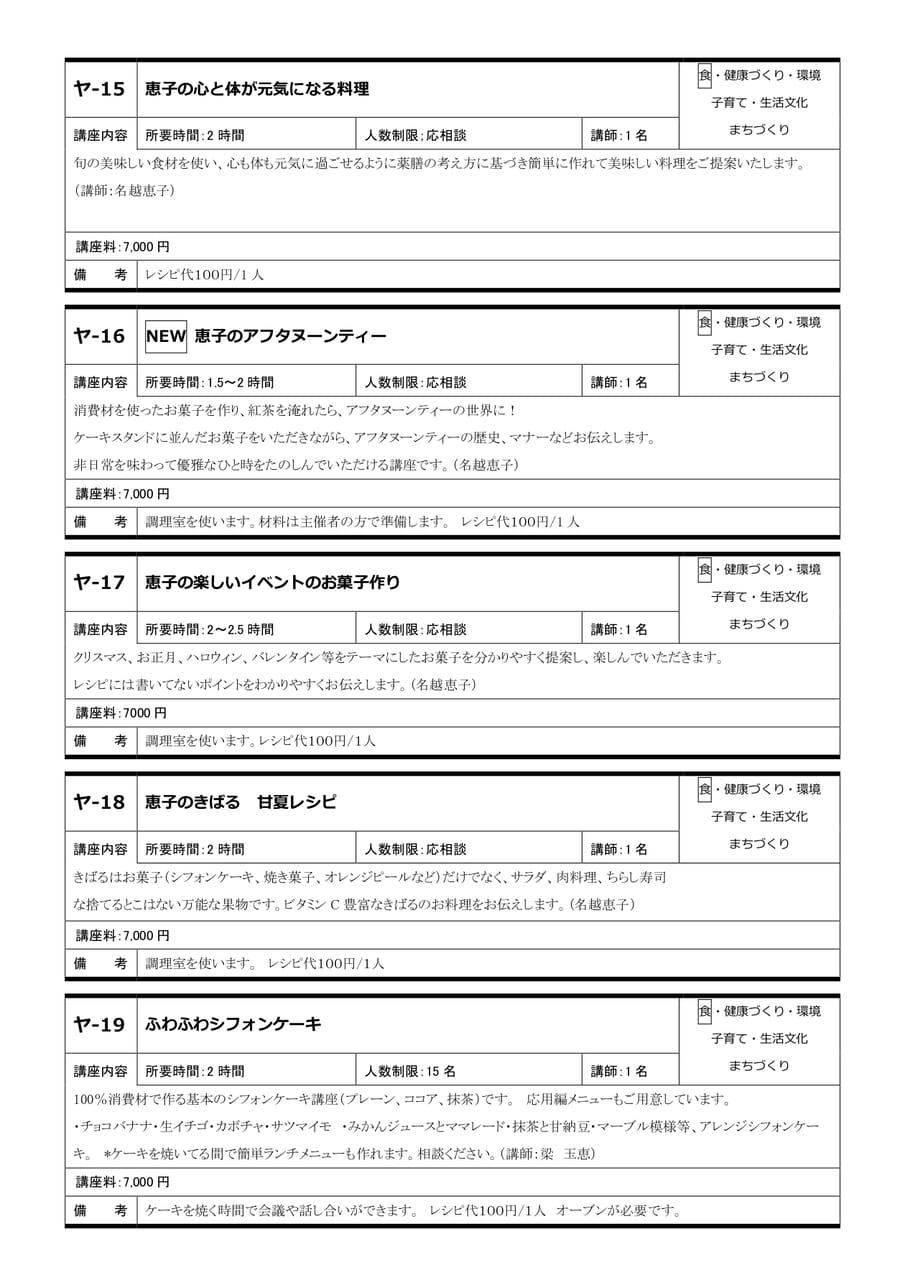 ヤ-15 恵子の心と体が元気になる料理
食・健康づくり・環境
子育て・生活文化
まちづくり
講座内容 所要時間：2 時間 人数制限；応相談 講師：1 名
旬の美味しい食材を使い、心も体も元気に過ごせるように薬膳の考え方に基づき簡単に作れて美味しい料理をご提案いたします。
（講師：名越恵子）
講座料：7,000 円
備 考 レシピ代100円/1 人
ヤ-16 NEW 恵子のアフタヌーンティー
食・健康づくり・環境
子育て・生活文化
まちづくり
講座内容 所要時間：1.5～2 時間 人数制限：応相談 講師：1 名
消費材を使ったお菓子を作り、紅茶を淹れたら、アフタヌーンティーの世界に！
ケーキスタンドに並んだお菓子をいただきながら、アフタヌーンティーの歴史、マナーなどお伝えします。
非日常を味わって優雅なひと時をたのしんでいただける講座です。（名越恵子）
講座料：7,000 円
備 考 調理室を使います。材料は主催者の方で準備します。 レシピ代100円/1 人
ヤ-17 恵子の楽しいイベントのお菓子作り
食・健康づくり・環境
子育て・生活文化
まちづくり
講座内容 所要時間：2～2.5 時間 人数制限：応相談 講師：1 名
クリスマス、お正月、ハロウィン、バレンタイン等をテーマにしたお菓子を分かりやすく提案し、楽しんでいただきます。
レシピには書いてないポイントをわかりやすくお伝えします。（名越恵子）
講座料：7000 円
備 考 調理室を使います。レシピ代100円/1人
ヤ-18 恵子のきばる 甘夏レシピ
食・健康づくり・環境
子育て・生活文化
まちづくり
講座内容 所要時間：2 時間 人数制限：応相談 講師：1 名
きばるはお菓子（シフォンケーキ、焼き菓子、オレンジピールなど）だけでなく、サラダ、肉料理、ちらし寿司
な捨てるとこはない万能な果物です。ビタミン C 豊富なきばるのお料理をお伝えします。（名越恵子）
講座料：7,000 円
備 考 調理室を使います。 レシピ代100円/1人
ヤ-19 ふわふわシフォンケーキ
食・健康づくり・環境
子育て・生活文化
まちづくり
講座内容 所要時間：2 時間 人数制限：15 名 講師：1 名
100％消費材で作る基本のシフォンケーキ講座（プレーン、ココア、抹茶）です。 応用編メニューもご用意しています。
・チョコバナナ・生イチゴ・カボチャ・サツマイモ ・みかんジュースとママレード・抹茶と甘納豆・マーブル模様等、アレンジシフォンケー
キ。 *ケーキを焼いてる間で簡単ランチメニューも作れます。相談ください。（講師：梁 玉恵）
講座料：7,000 円
備 考 ケーキを焼く時間で会議や話し合いができます。 レシピ代100円/1人 オーブンが必要です。